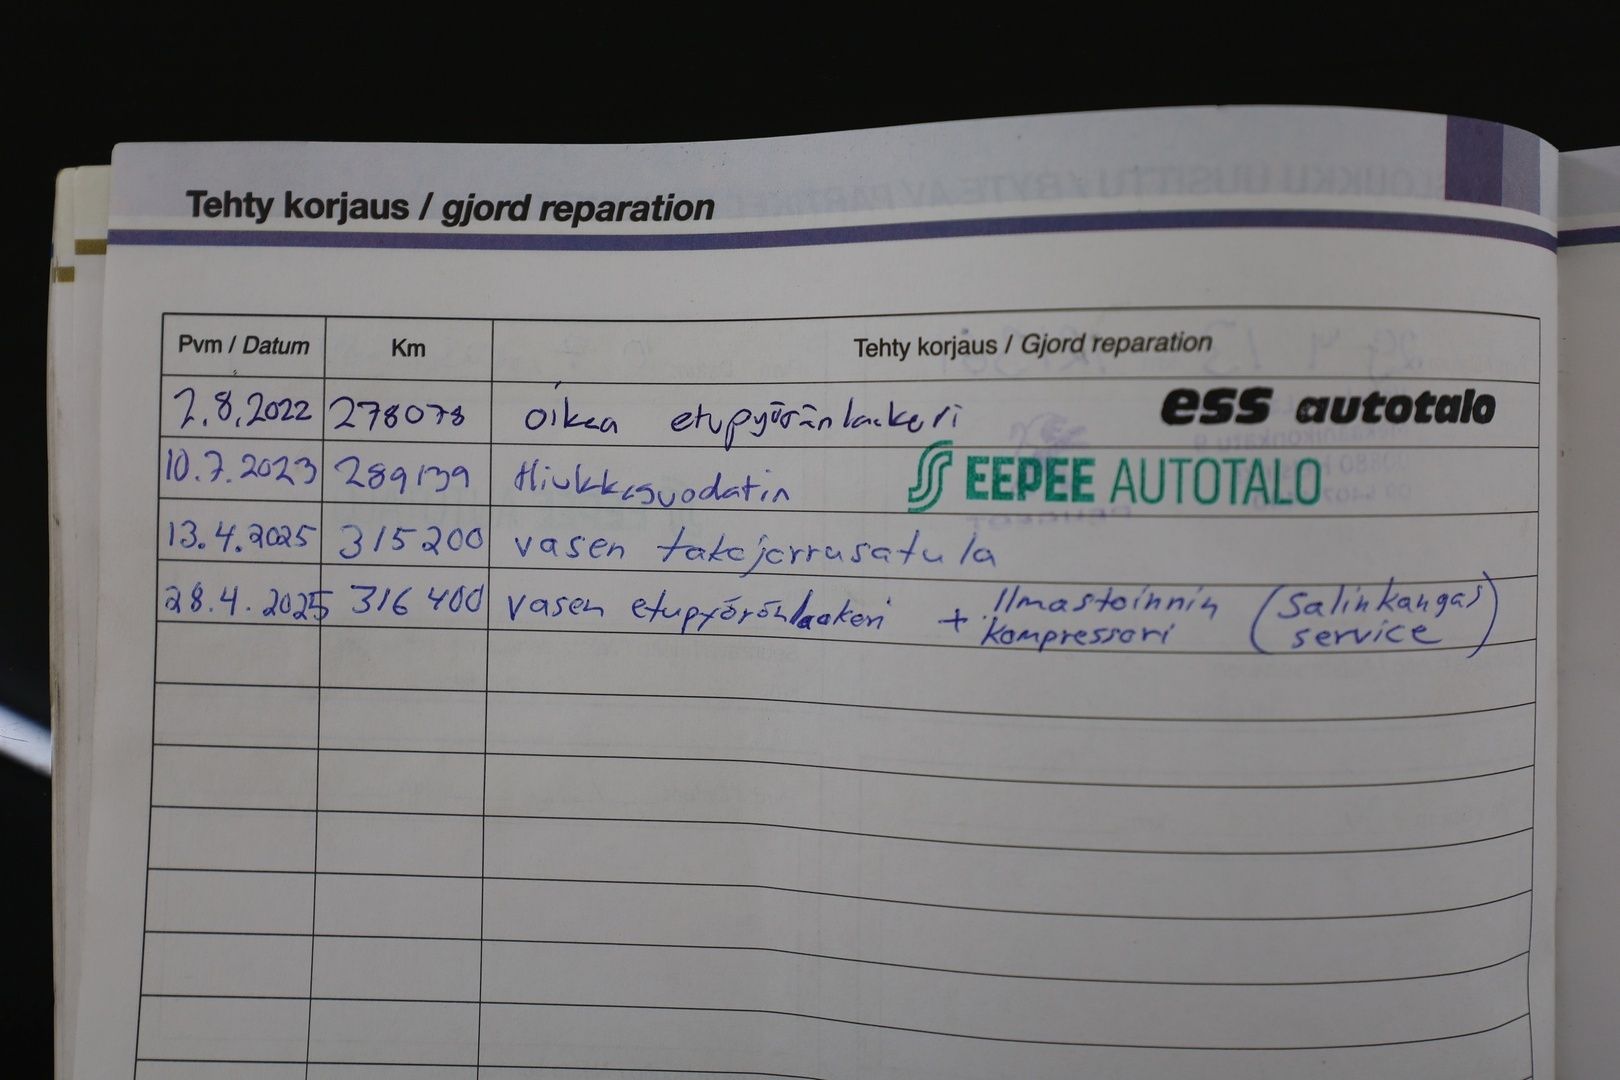 Tehty korjaus / gjord reparation
Pvm / Datum Km Tehty korjaus / Gjord reparation
2.8.2022 278078 oikea etupyöränlaakeri ess autotalo
10.7.2023 289139 Hiukkassuodatin EEPEE AUTOTALO
13.4.2025 315200 vasen takajarrusatula
28.4.2025 316400 vasen etupyöränlaakeri + Ilmastoinnin kompressori (Salinkangas service)